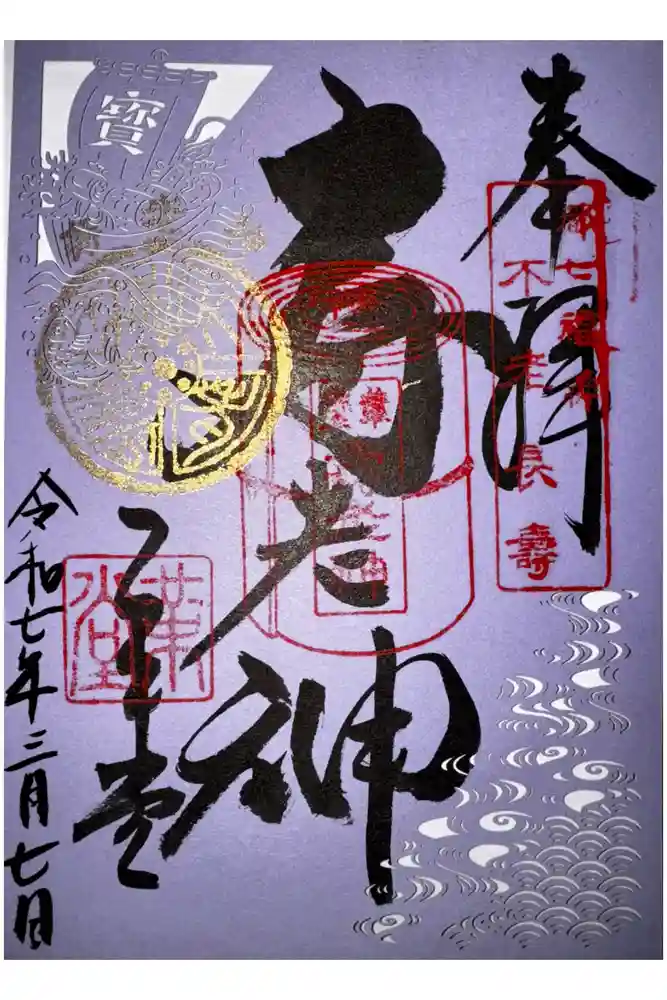 奉拝
都七福神
不老長壽
寿老神
革堂
革堂
令和七年三月七日
寶